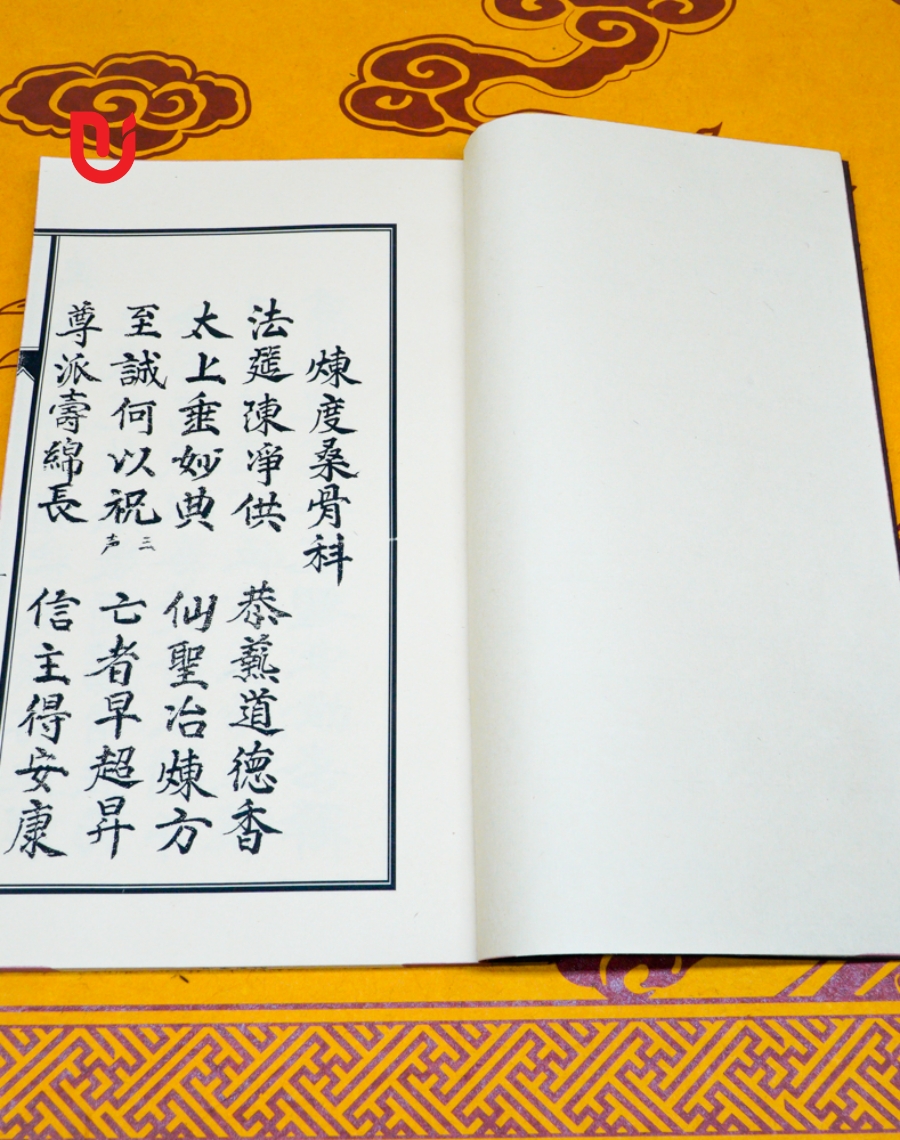 煉度桑骨科
法筵陳淨供 恭爇道德香
太上垂妙典 仙聖冶煉方
至誠何以祝 三声 亡者早超昇
尊派壽綿長 信主得安康